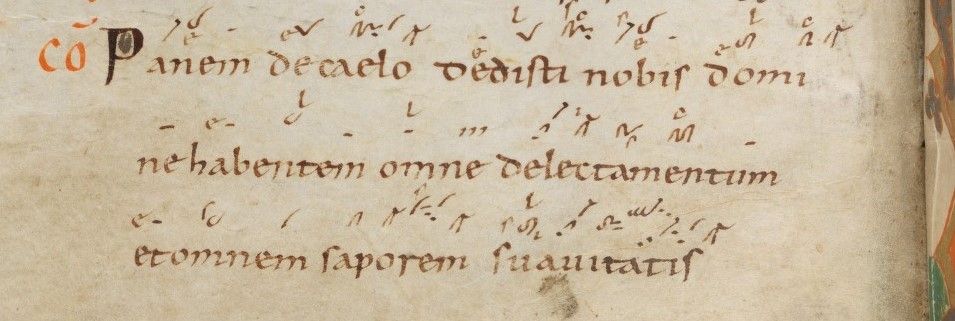 CŌ Panem de caelo dedisti nobis domi
ne habentem omne delectamentum
et omnem saporem suauitatis